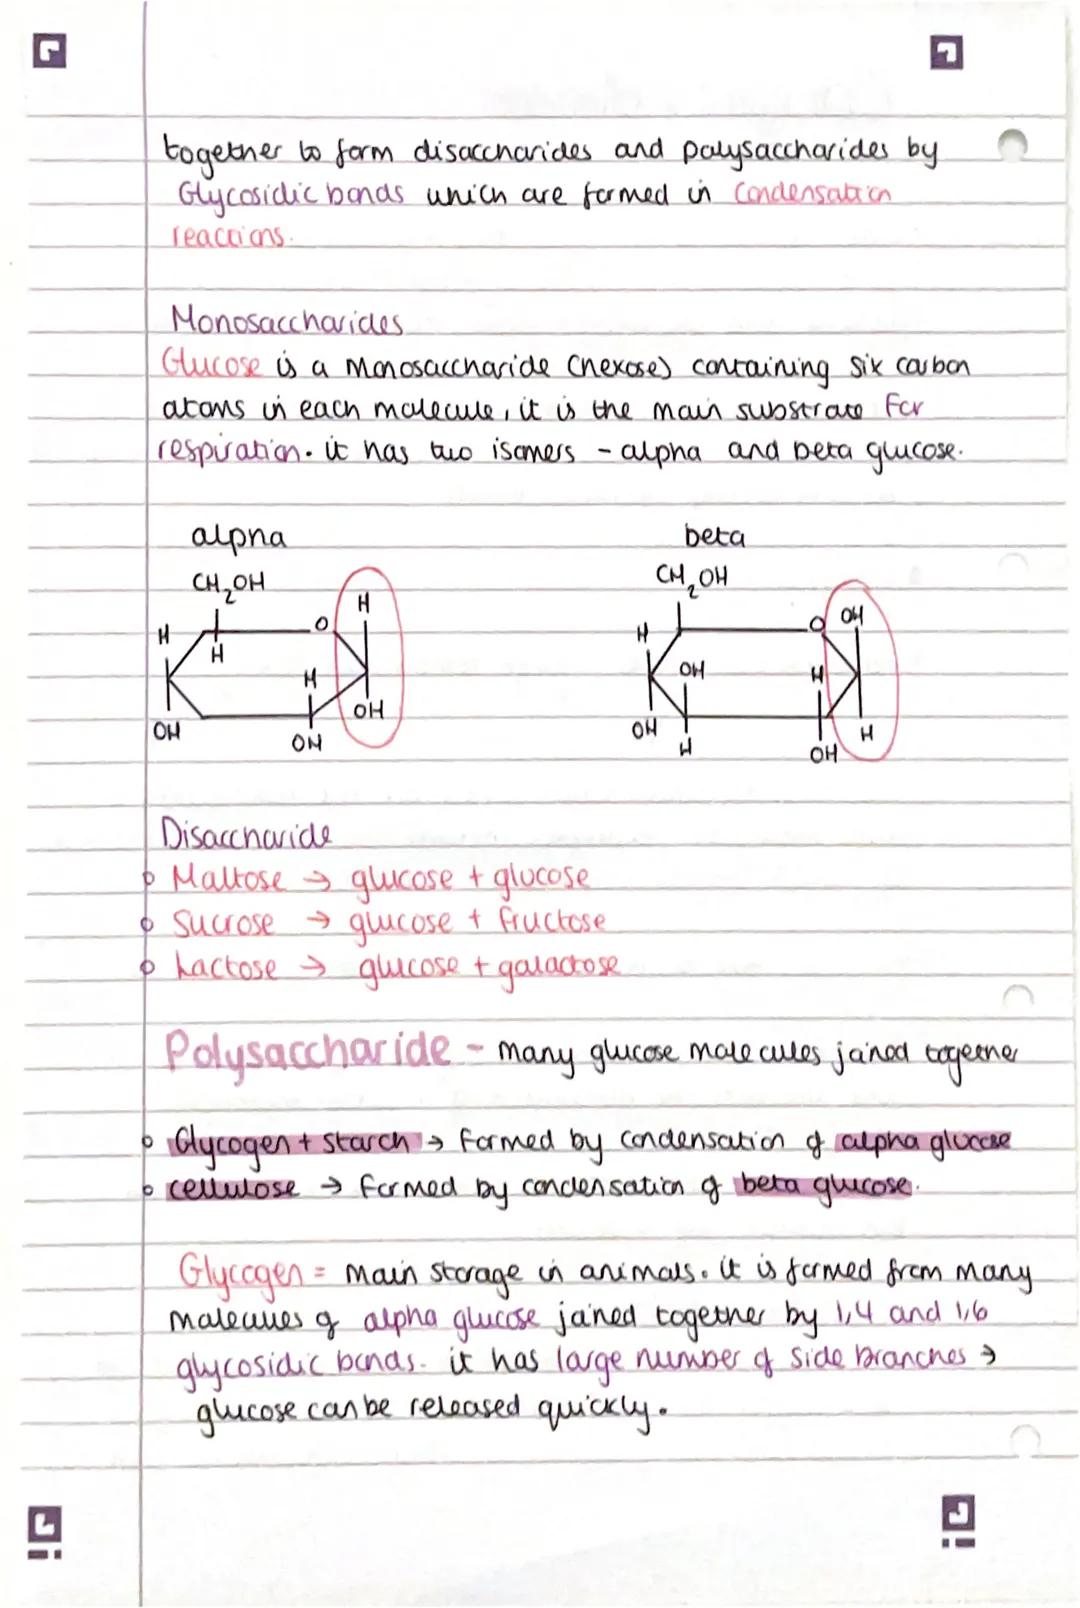 together to form disaccharides and polysaccharides by
Glycosidic bonds which are formed in condensation
reactions.
Monosaccharides
Glucose is a monosaccharide (hexose) containing six carbon
atoms in each molecule, it is the main substrate for
respiration. it has two isomers - alpha and beta glucose.
alpha
beta
CH2OH
CH2OH
H
O
H
H
H
OH
OH
OH
H
O
OH
OH
H
OH
H
OH
H
Disaccharide
Maltose → glucose + glucose
Sucrose → glucose + fructose
Lactose → glucose + galactose
Polysaccharide - many glucose molecules joined together
Glycogen + starch → formed by condensation of alpha glucose
cellulose → formed by condensation of beta glucose.
Glycogen = main storage in animals. it is formed from many
molecules of alpha glucose joined together by 1,4 and 1,6
glycosidic bonds. it has large number of side branches →
glucose can be released quickly.